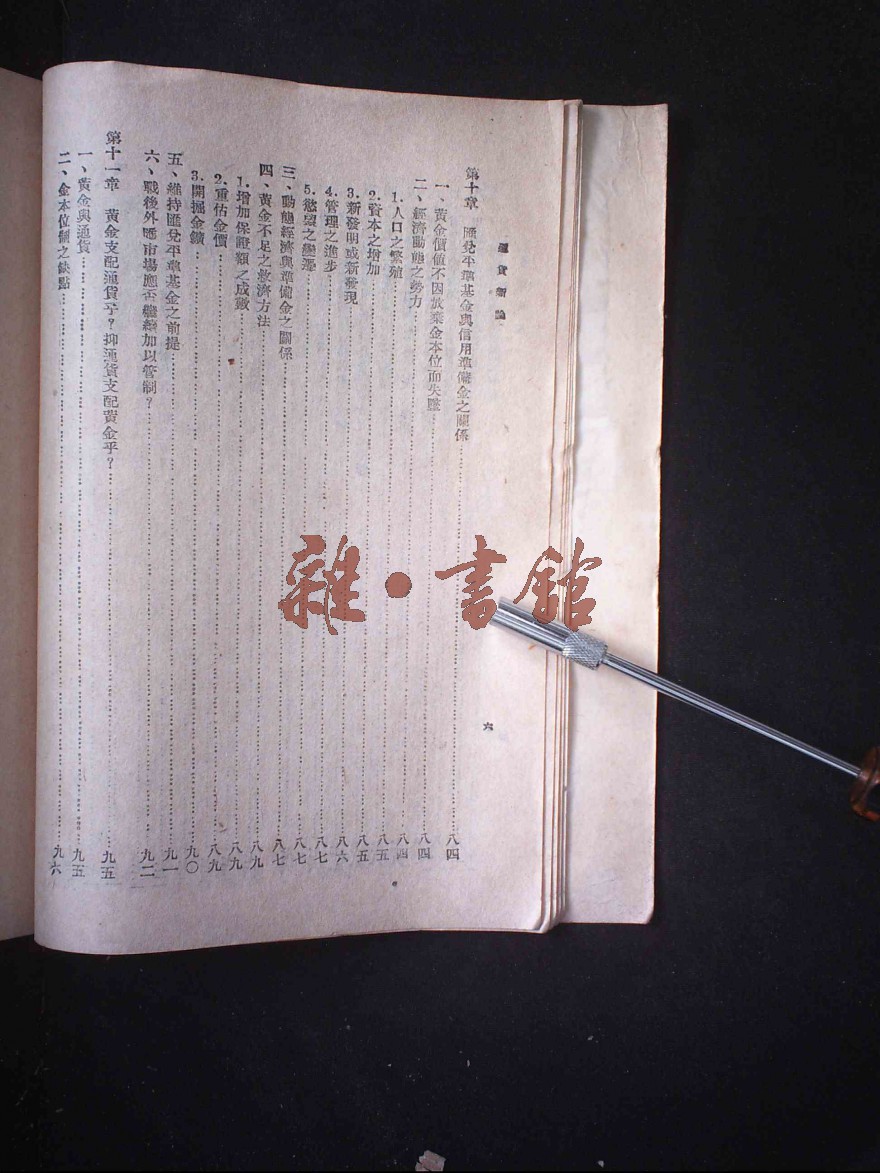 通貨新論
六
第十章 匯兌平準基金與信用準備金之關係……八四
一、黃金價値不因放棄金本位而失墜……八四
二、經濟動態之勢力……八四
1.人口之繁殖……八四
2.資本之增加……八五
3.新發明或新發現……八五
4.管理之進步……八六
5.慾望之變遷……八七
三、動態經濟與準備金之關係……八七
四、黃金不足之救濟方法……八九
1.增加保證類之成數……八九
2.重估金價……八九
3.開掘金鑛……九〇
五、維持匯兌平準基金之前提……九一
六、戰後外匯市場應否繼續加以管制？……九二
第十一章 黃金支配通貨乎？抑通貨支配黃金乎？……九五
一、黃金與通貨……九五
二、金本位制之缺點……九六
雜·書館